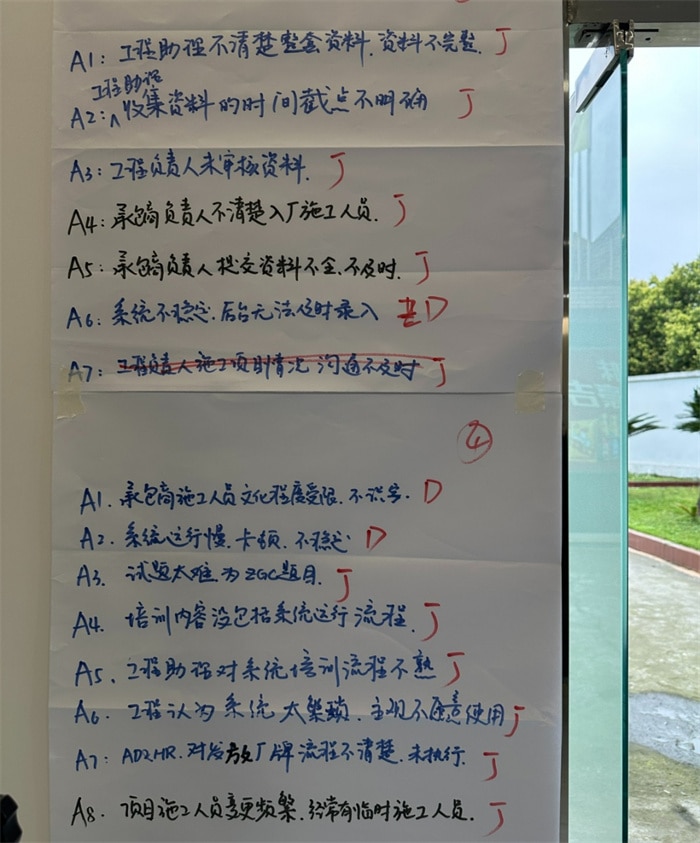 A1: 工程助理不清楚整套资料, 资料不完整. J
工程助理
A2: ∧收集资料的时间截点不明确 J
A3: 工程负责人未审核资料. J
A4: 承包商负责人不清楚入厂施工人员. J
A5: 承包商负责人提交资料不全、不及时. J
A6: 系统不稳定. 后台无法及时录入 D
A7: 工程负责人施工项目情况 沟通不及时 J
④
A1. 承包商施工人员文化程度受限. 不识字. D
A2. 系统运行慢. 卡顿. 不稳定 D
A3. 试题太难. 为ZGC题目. J
A4. 培训内容没包括系统运行流程. J
A5. 工程助理对系统培训流程不熟 J
A6. 工程认为系统太繁琐. 主观不愿意使用 J
A7: HR. 对发放厂牌流程不清楚. 未执行. J
A8. 项目施工人员变更频繁. 经常有临时施工人员. J